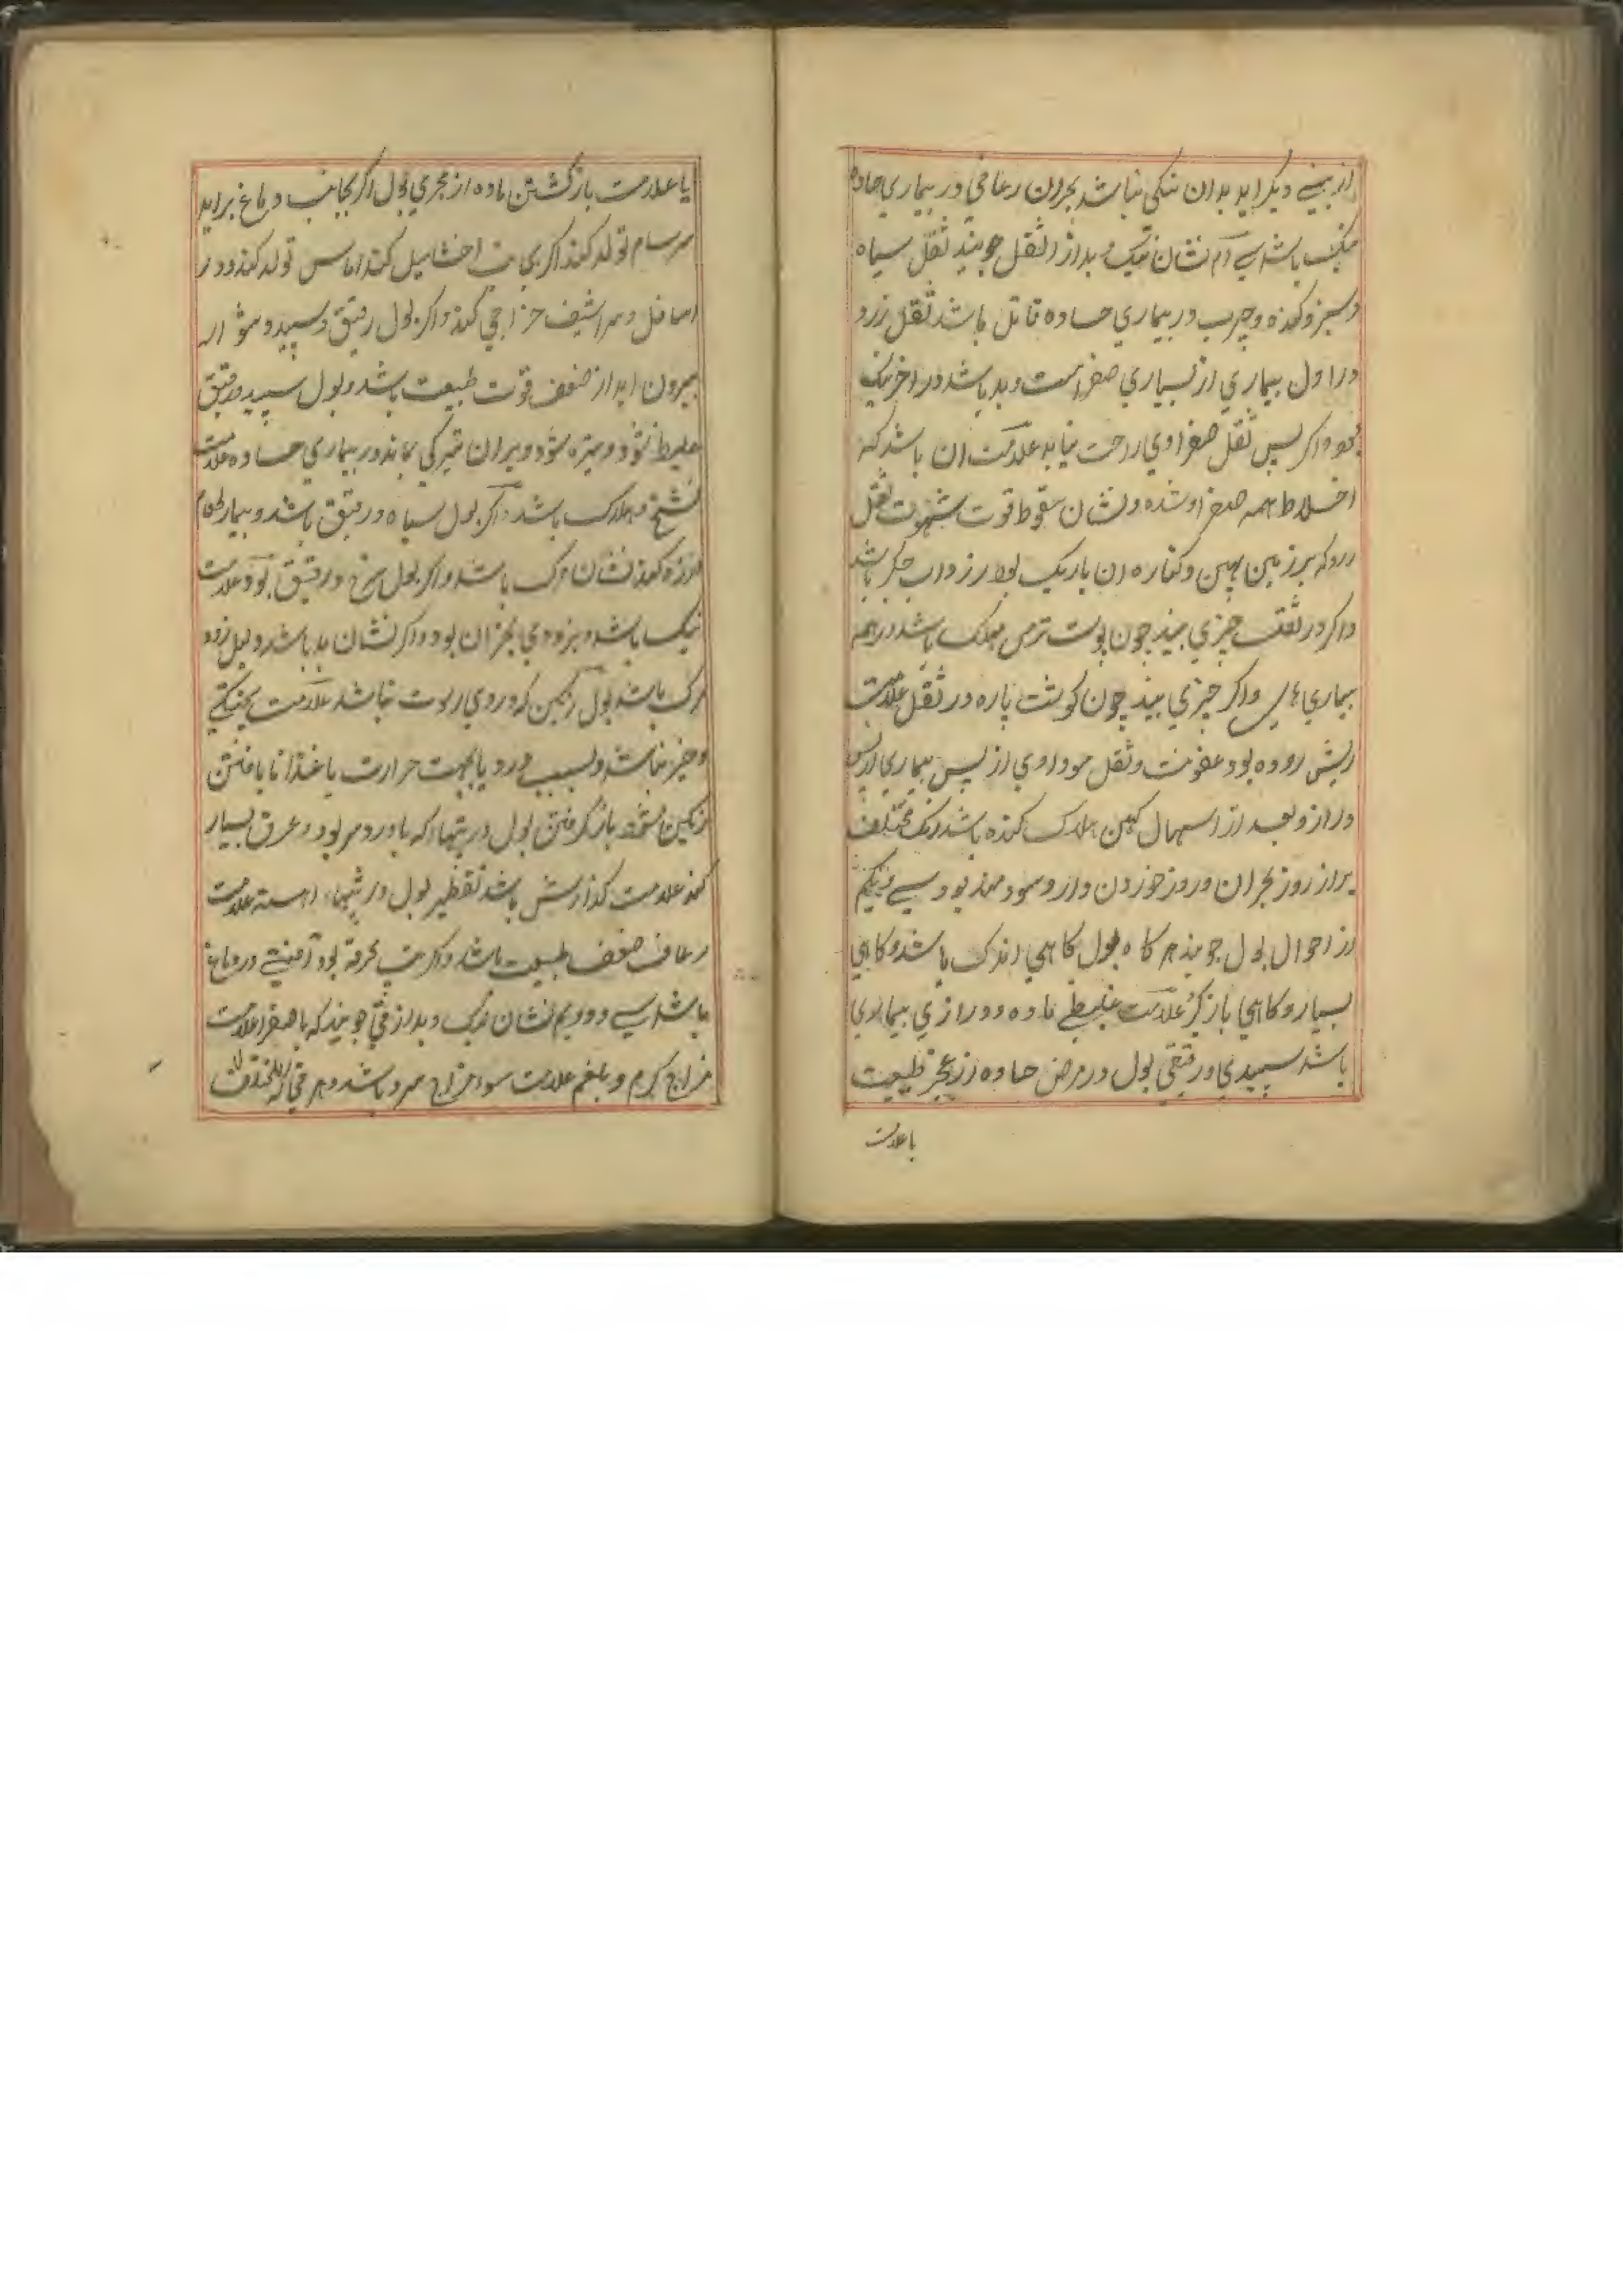 از بینی دیگر اید بدان نیکی نباشد بحران رعافی در بیماری حاده
نیک باشد سی ام نشان نیک و بد از ثقل جویند ثقل سیاه
و سبز و کنده و چرب در بیماری حاده قاتل باشد ثقل زرد
در اول بیماری از بسیاری صفراست و بد باشد در اخر نیک
بود و اکر پس ثقل صفراوی راحت نیابد علامت ان باشد که
اخلاط همه صفرا و شده و نشان سقوط قوت شهوت ثقل
رود که بر زمین پهن و کناره ان باریک بود از ذواب جکر باشد
و اکر در ثقل چیزی بیند چون پوست ترمس مهلک باشد در همه
بیماری های و اکر چیزی بیند چون کوشت پاره در ثقل علامت
ریش روده بود عفونت و ثقل سوداوی از پس بیماری از پس
دراز و بعد از اسهال کهن هلاک کننده باشد رنک مختلف
براز روز بحران و روز خوردن دارو سودمند بود سی و یکم
از احوال بول جویند هر کاه بول کاهی اندک باشد و کاهی
بسیار و کاهی باز کیرد علامت غلیظی ماده و درازی بیماری
باشد سپیدی و رقیقی بول در مرض حاده از عجز طبیعت
یا علامت
یا علامت باز کشتن ماده از مجری بول اکر بجانب دماغ براید
سرسام تولد کند اکر بجانب احشا میل کند اماس تولد کند و در
اسافل و مراشیف خراجی کند و اکر بول رقیق و سپید و دشوار
بیرون اید از ضعف قوت طبیعت باشد و بول سپید و رقیق
غلیظ نشود و تیره شود و بران تیرکی بماند در بیماری حاده علامت
تشنج و هلاک باشد و اکر بول سیاه و رقیق باشد و بیمار طعام
ارزو کند نشان مرک باشد و اکر بول سرخ و رقیق بود علامت
نیک باشد و بزودی بحران بود و اکر نشان بد باشد دلیل زود
مرک باشد بول رنکین که در وی رسوب نباشد علامت پختکی
و خیر نباشد و بسبب درد یا بجهت حرارت یا غذا نا یافتن
رنکین شود باز کرفتن بول در تبها که با درد سر بود و عرق بسیار
کند علامت کزازش باشد تقطیر بول در تبهاء اهسته علامت
رعاف ضعف طبیعت باشد و اکر تب محرقه بود آفتی در دماغ
باشد سی و دویم نشان نیک و بد از قی جویند که با صفرا علامت
مزاج کرم و بلغم علامت سوء مزاج سرد باشد و هر قی که